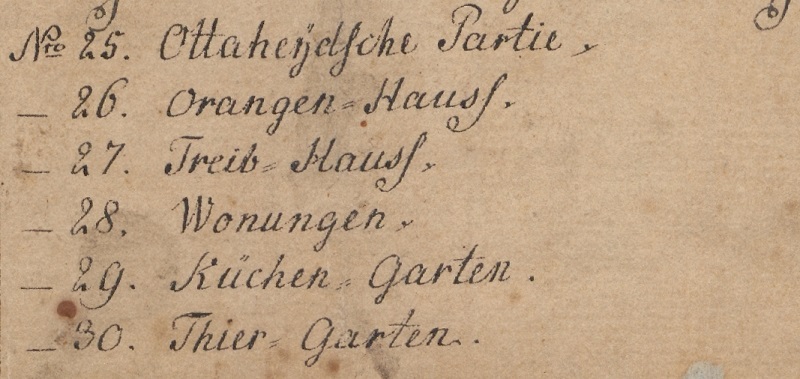 Nro 25. Ottaheÿdsche Partie.
— 26. Orangen=Hauss.
— 27. Treib=Hauss.
— 28. Wonungen.
— 29. Küchen=Garten.
— 30. Thier=Garten.